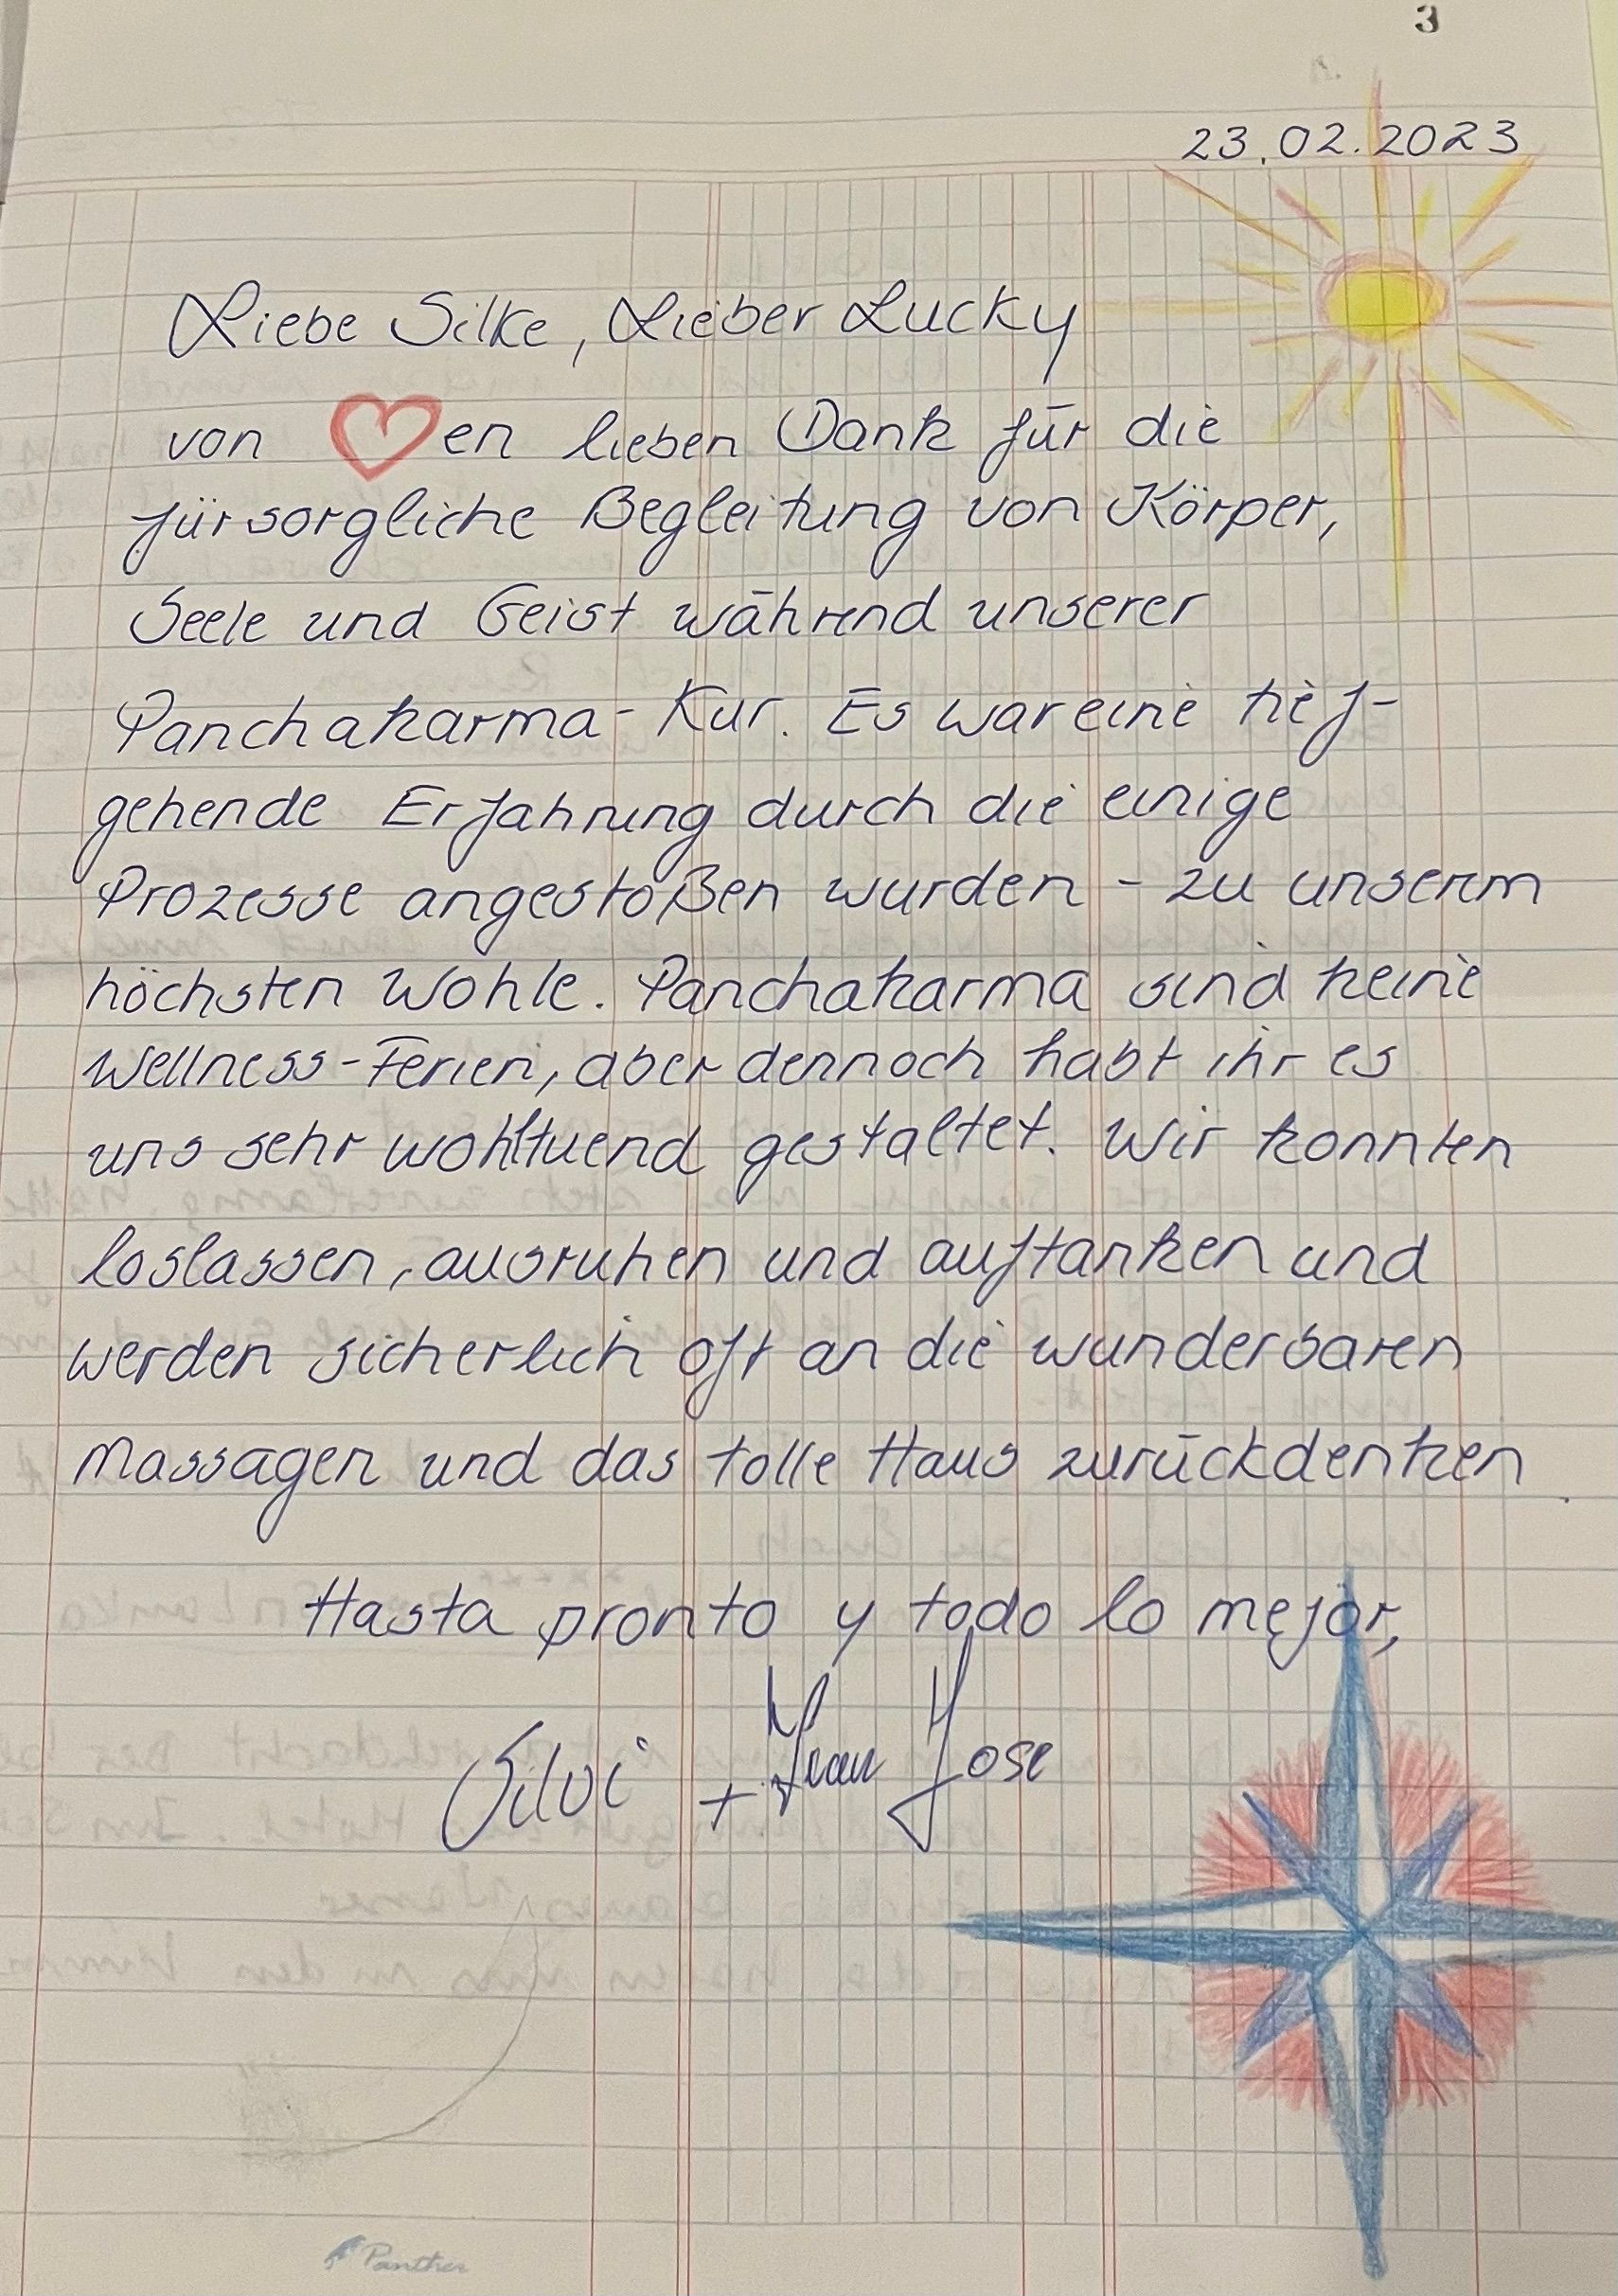 3
23.02.2023
Liebe Silke, Lieber Lucky
von ♡en lieben Dank für die
fürsorgliche Begleitung von Körper,
Seele und Geist während unserer
Panchakarma-Kur. Es war eine tief-
gehende Erfahrung durch die einige
Prozesse angestoßen wurden - zu unserem
höchsten Wohle. Panchakarma sind keine
Wellness-Ferien, aber dennoch habt ihr es
uns sehr wohltuend gestaltet. Wir konnten
loslassen, ausruhen und auftanken und
werden sicherlich oft an die wunderbaren
Massagen und das tolle Haus zurückdenken.
Hasta pronto y todo lo mejor,
Silvi + Juan Jose
Panther